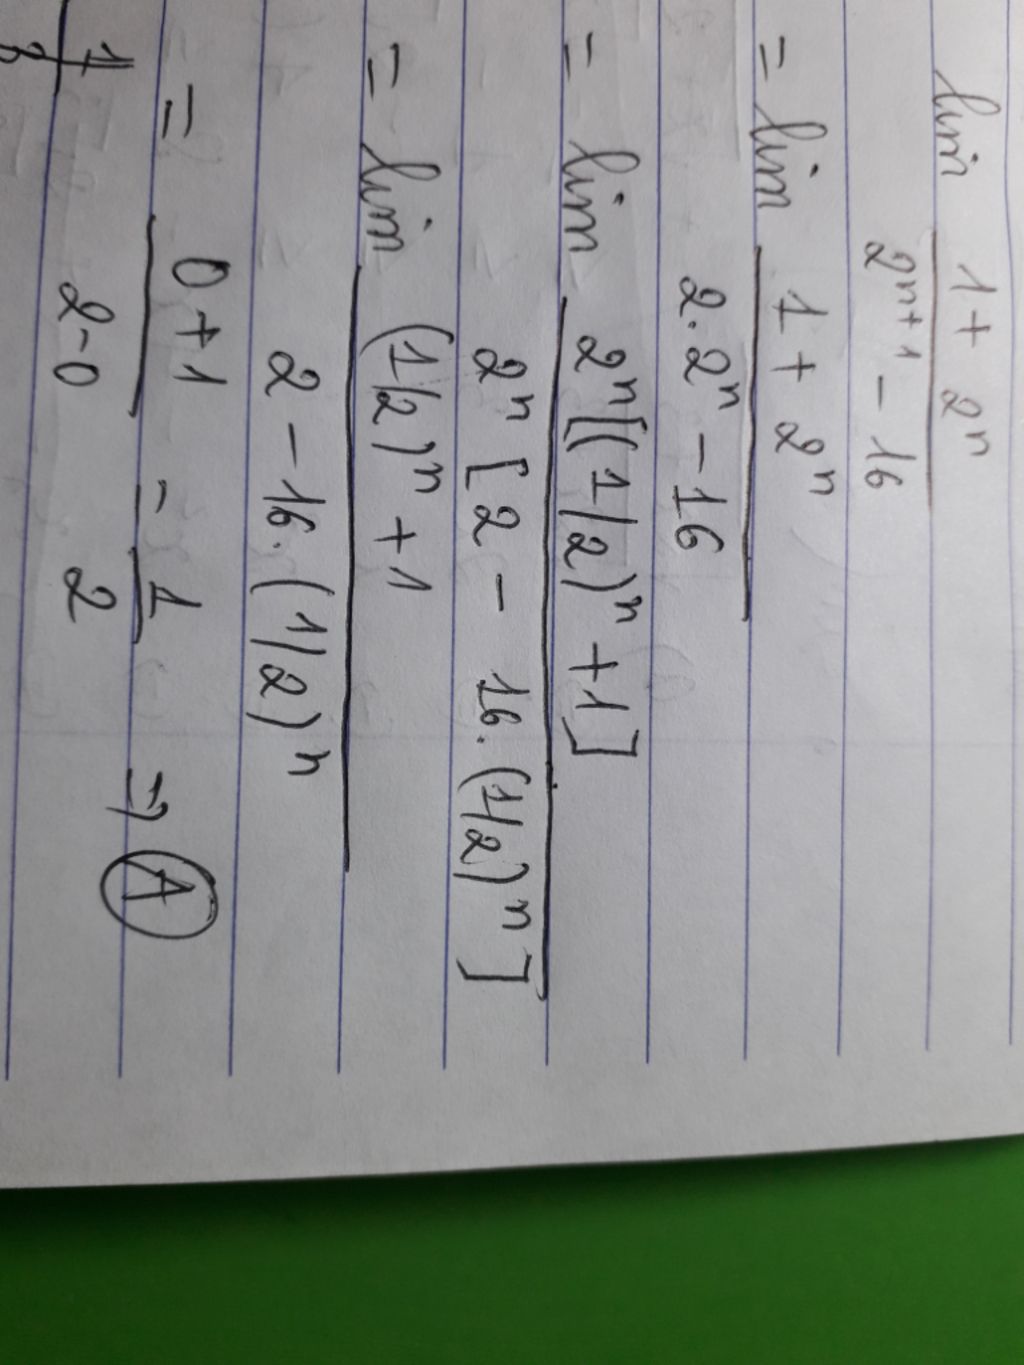 lim (1 + 2^n) / (2^(n+1) - 16)
= lim (1 + 2^n) / (2.2^n - 16)
= lim 2^n[(1/2)^n + 1] / 2^n[2 - 16.(1/2)^n]
= lim ((1/2)^n + 1) / (2 - 16.(1/2)^n)
= (0+1) / (2-0) = 1/2 => A